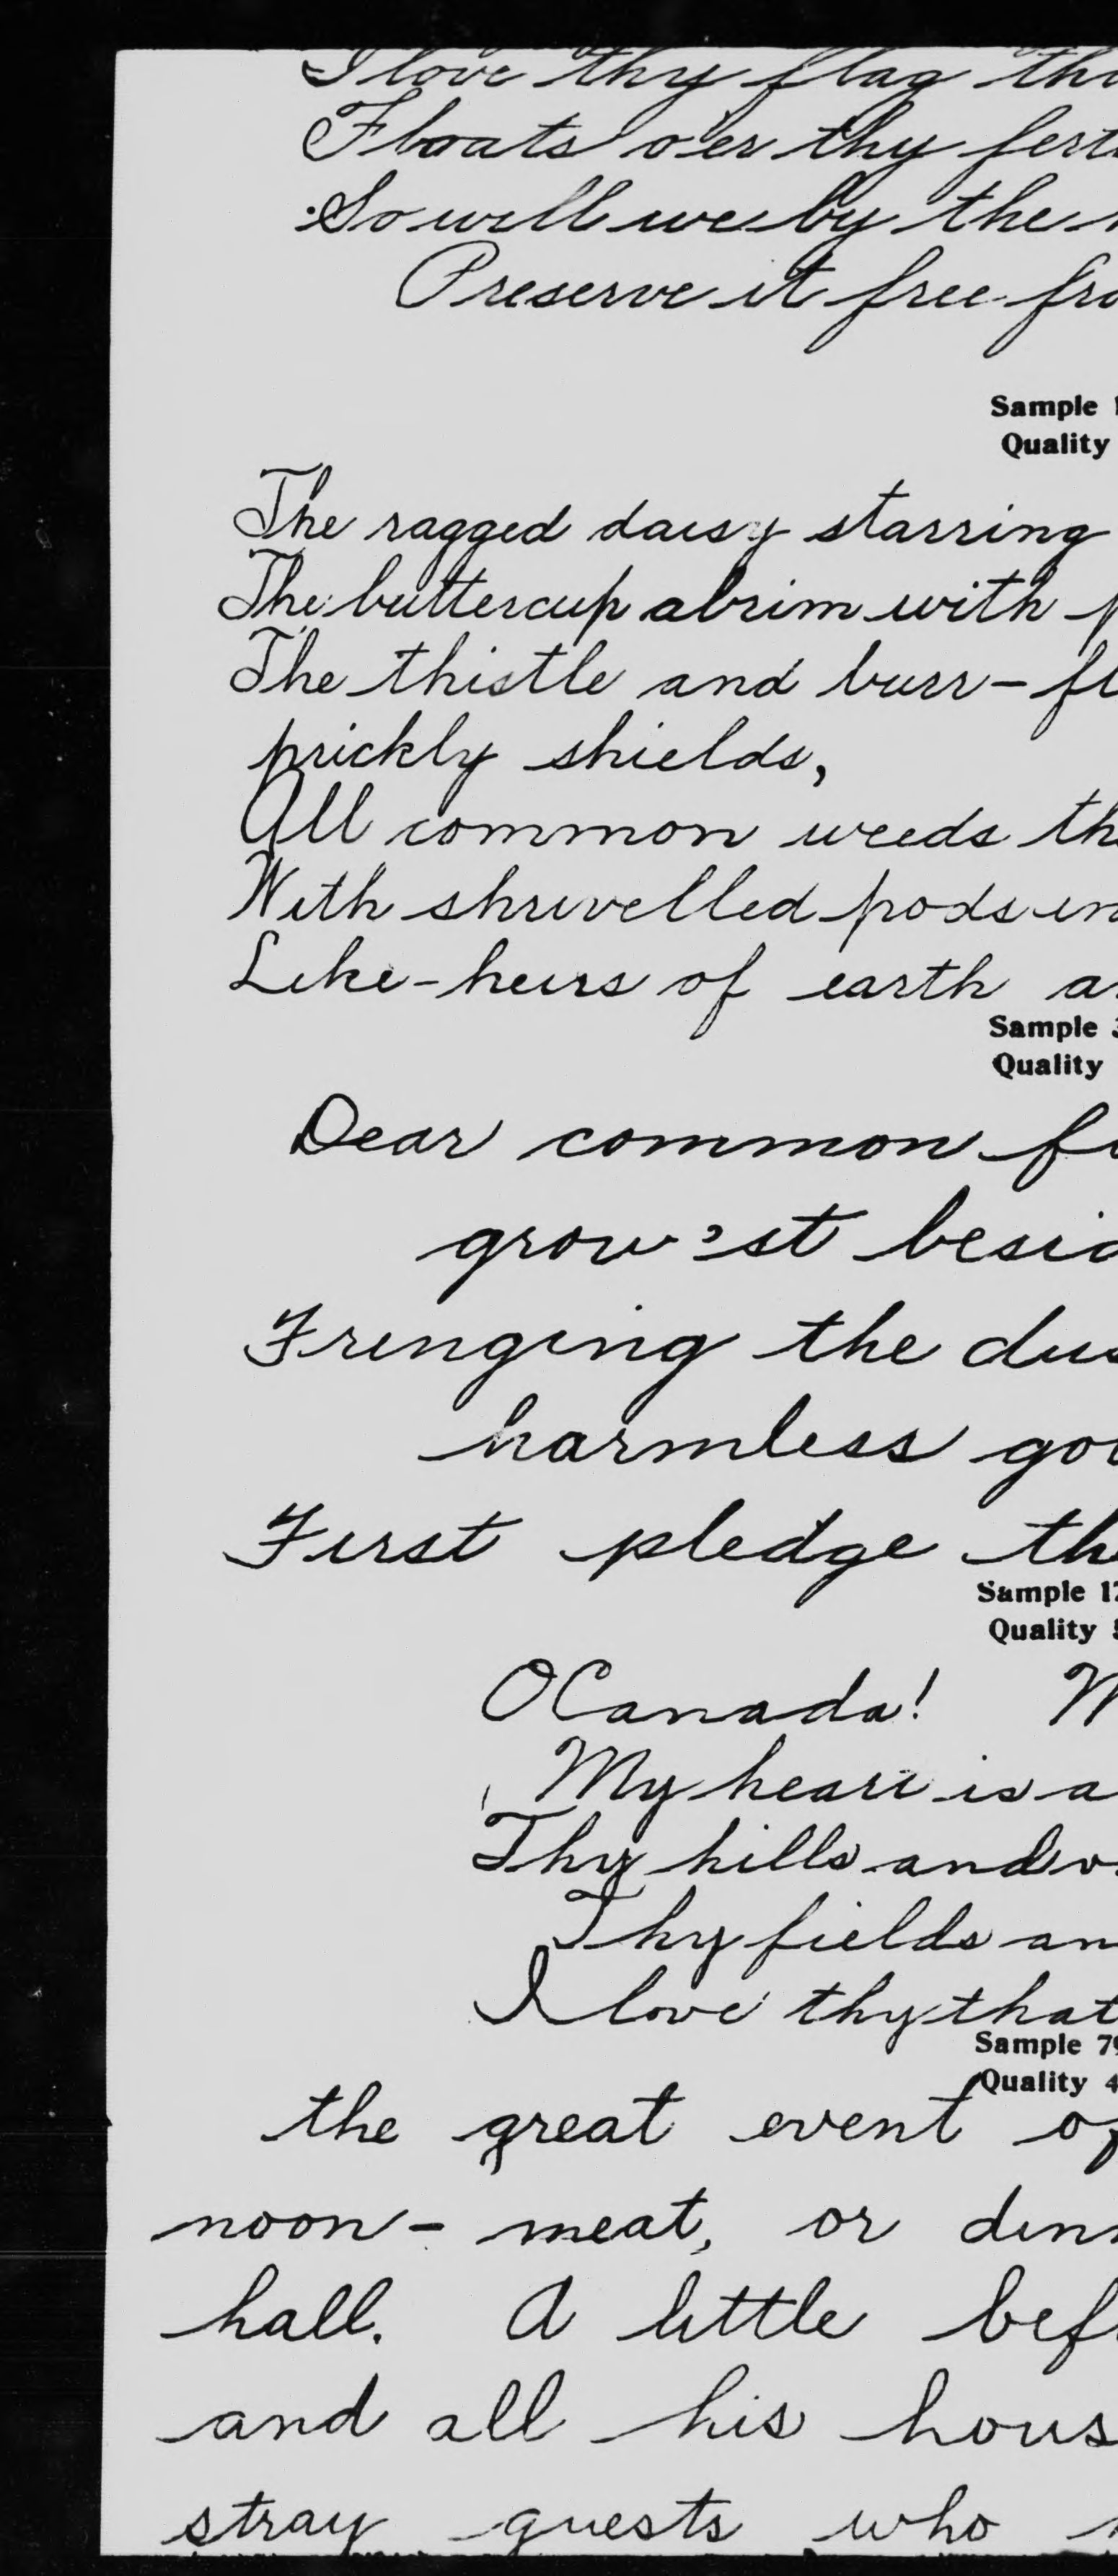 I love thy flag tha
Floats o'er thy ferti
So will we by the
Preserve it free fro
Sample 1
Quality
The ragged daisy starring
The buttercup abrim with
The thistle and burr-fl
prickly shields,
All common weeds th
With shrivelled pods in
Like-heirs of earth a
Sample 3
Quality
Dear common fl
grow'st besid
Fringing the dus
harmless gol
First pledge the
Sample 17
Quality 5
O Canada! M
My heart is a
Thy hills and v
Thy fields an
I love thy that
Sample 79
Quality 4
the great event of
noon-meat, or dinn
hall. A little befo
and all his hous
stray guests who